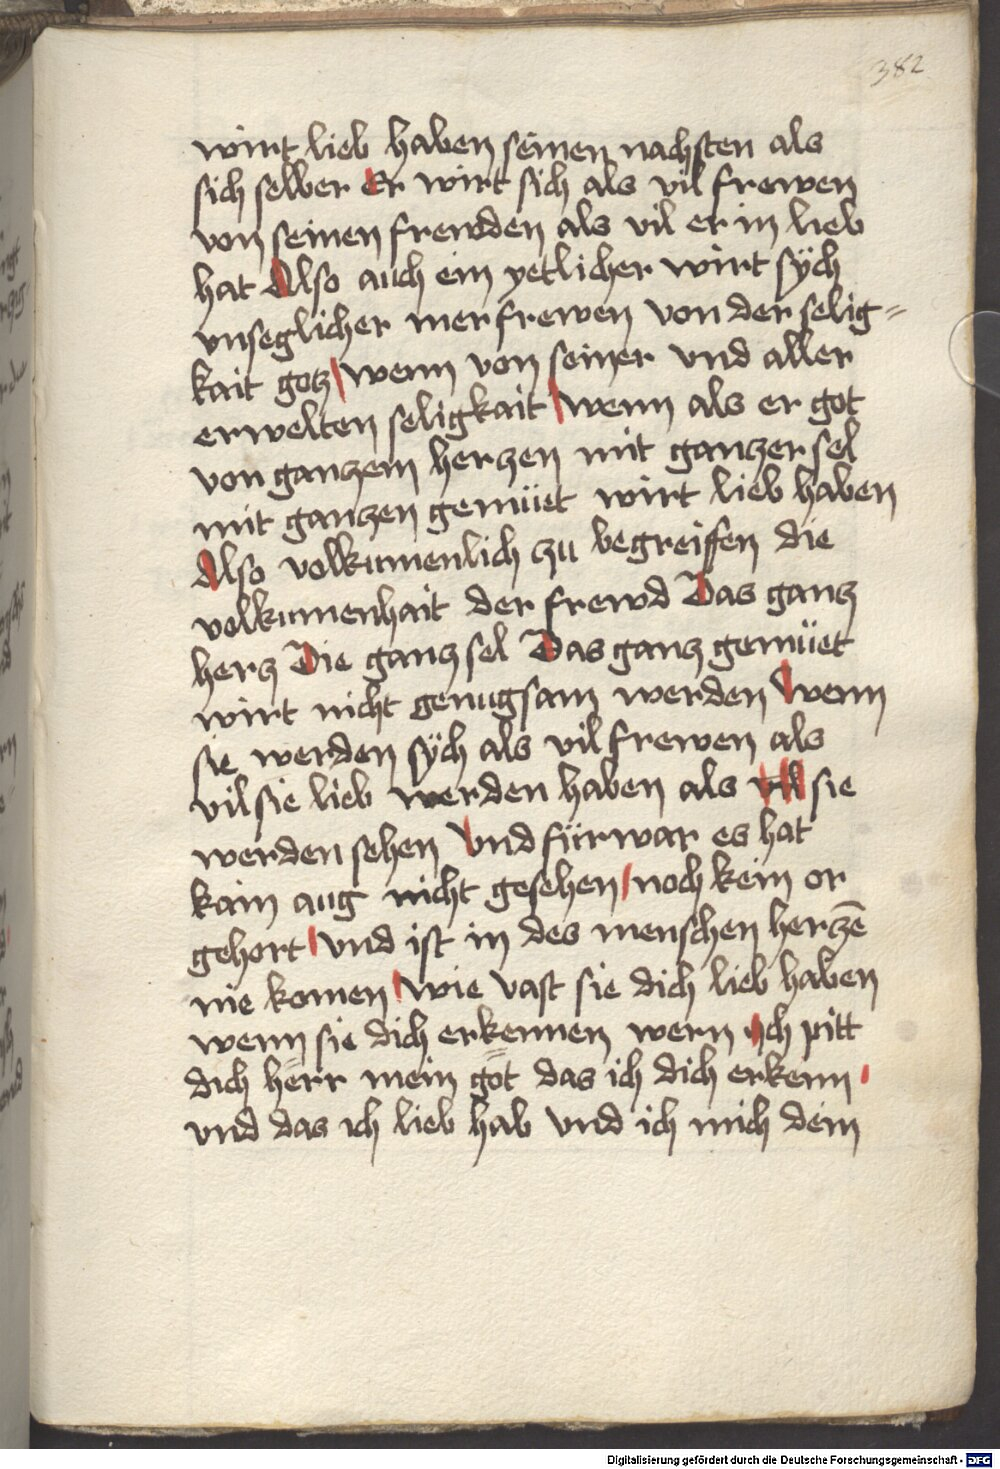 382
wirt lieb haben seinen nachsten als
sich selber Er wirt sich als vil frewen
von seinen frewdden als vil er in lieb
hat Also auch ein yetlicher wirt sÿch
vnseglicher mer frewen von der selig=
kait gotz wenn von seiner vnd aller
erwelten seligkait wenn als er got
von ganczem herczen mit ganczer sel
mit ganczen gemüet wirt lieb haben
Also volkumenlich zu begreiffen die
volkumenhait der frewd Das gancz
hercz Die gancz sel Das gancz gemüet
wirt nicht genugsam werden Wenn
sie werden sÿch als vil frewen als
vil sie lieb werden haben als vil sie
werden sehen Vnd fürwar es hat
kain aug nicht gesehen noch kein or
gehort vnd ist in des menschen herczē
nie komen wie vast sie dich lieb haben
wenn sie dich erkennen wern Ich pitt
dich herr mein got das ich dich erkenn
vnd das ich lieb hab vnd ich mich dein
Digitalisierung gefördert durch die Deutsche Forschungsgemeinschaft - DFG